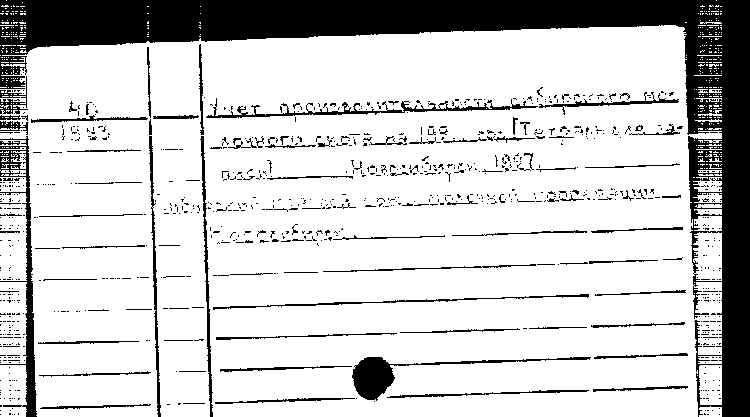 40
1593
Учет производительности сибирского мо-
лочного скота на 192.. год. [Тетрадь для за-
писи] Новосибирск, 1927.
Сибирский краевой союз молочной кооперации
Новосибирск.